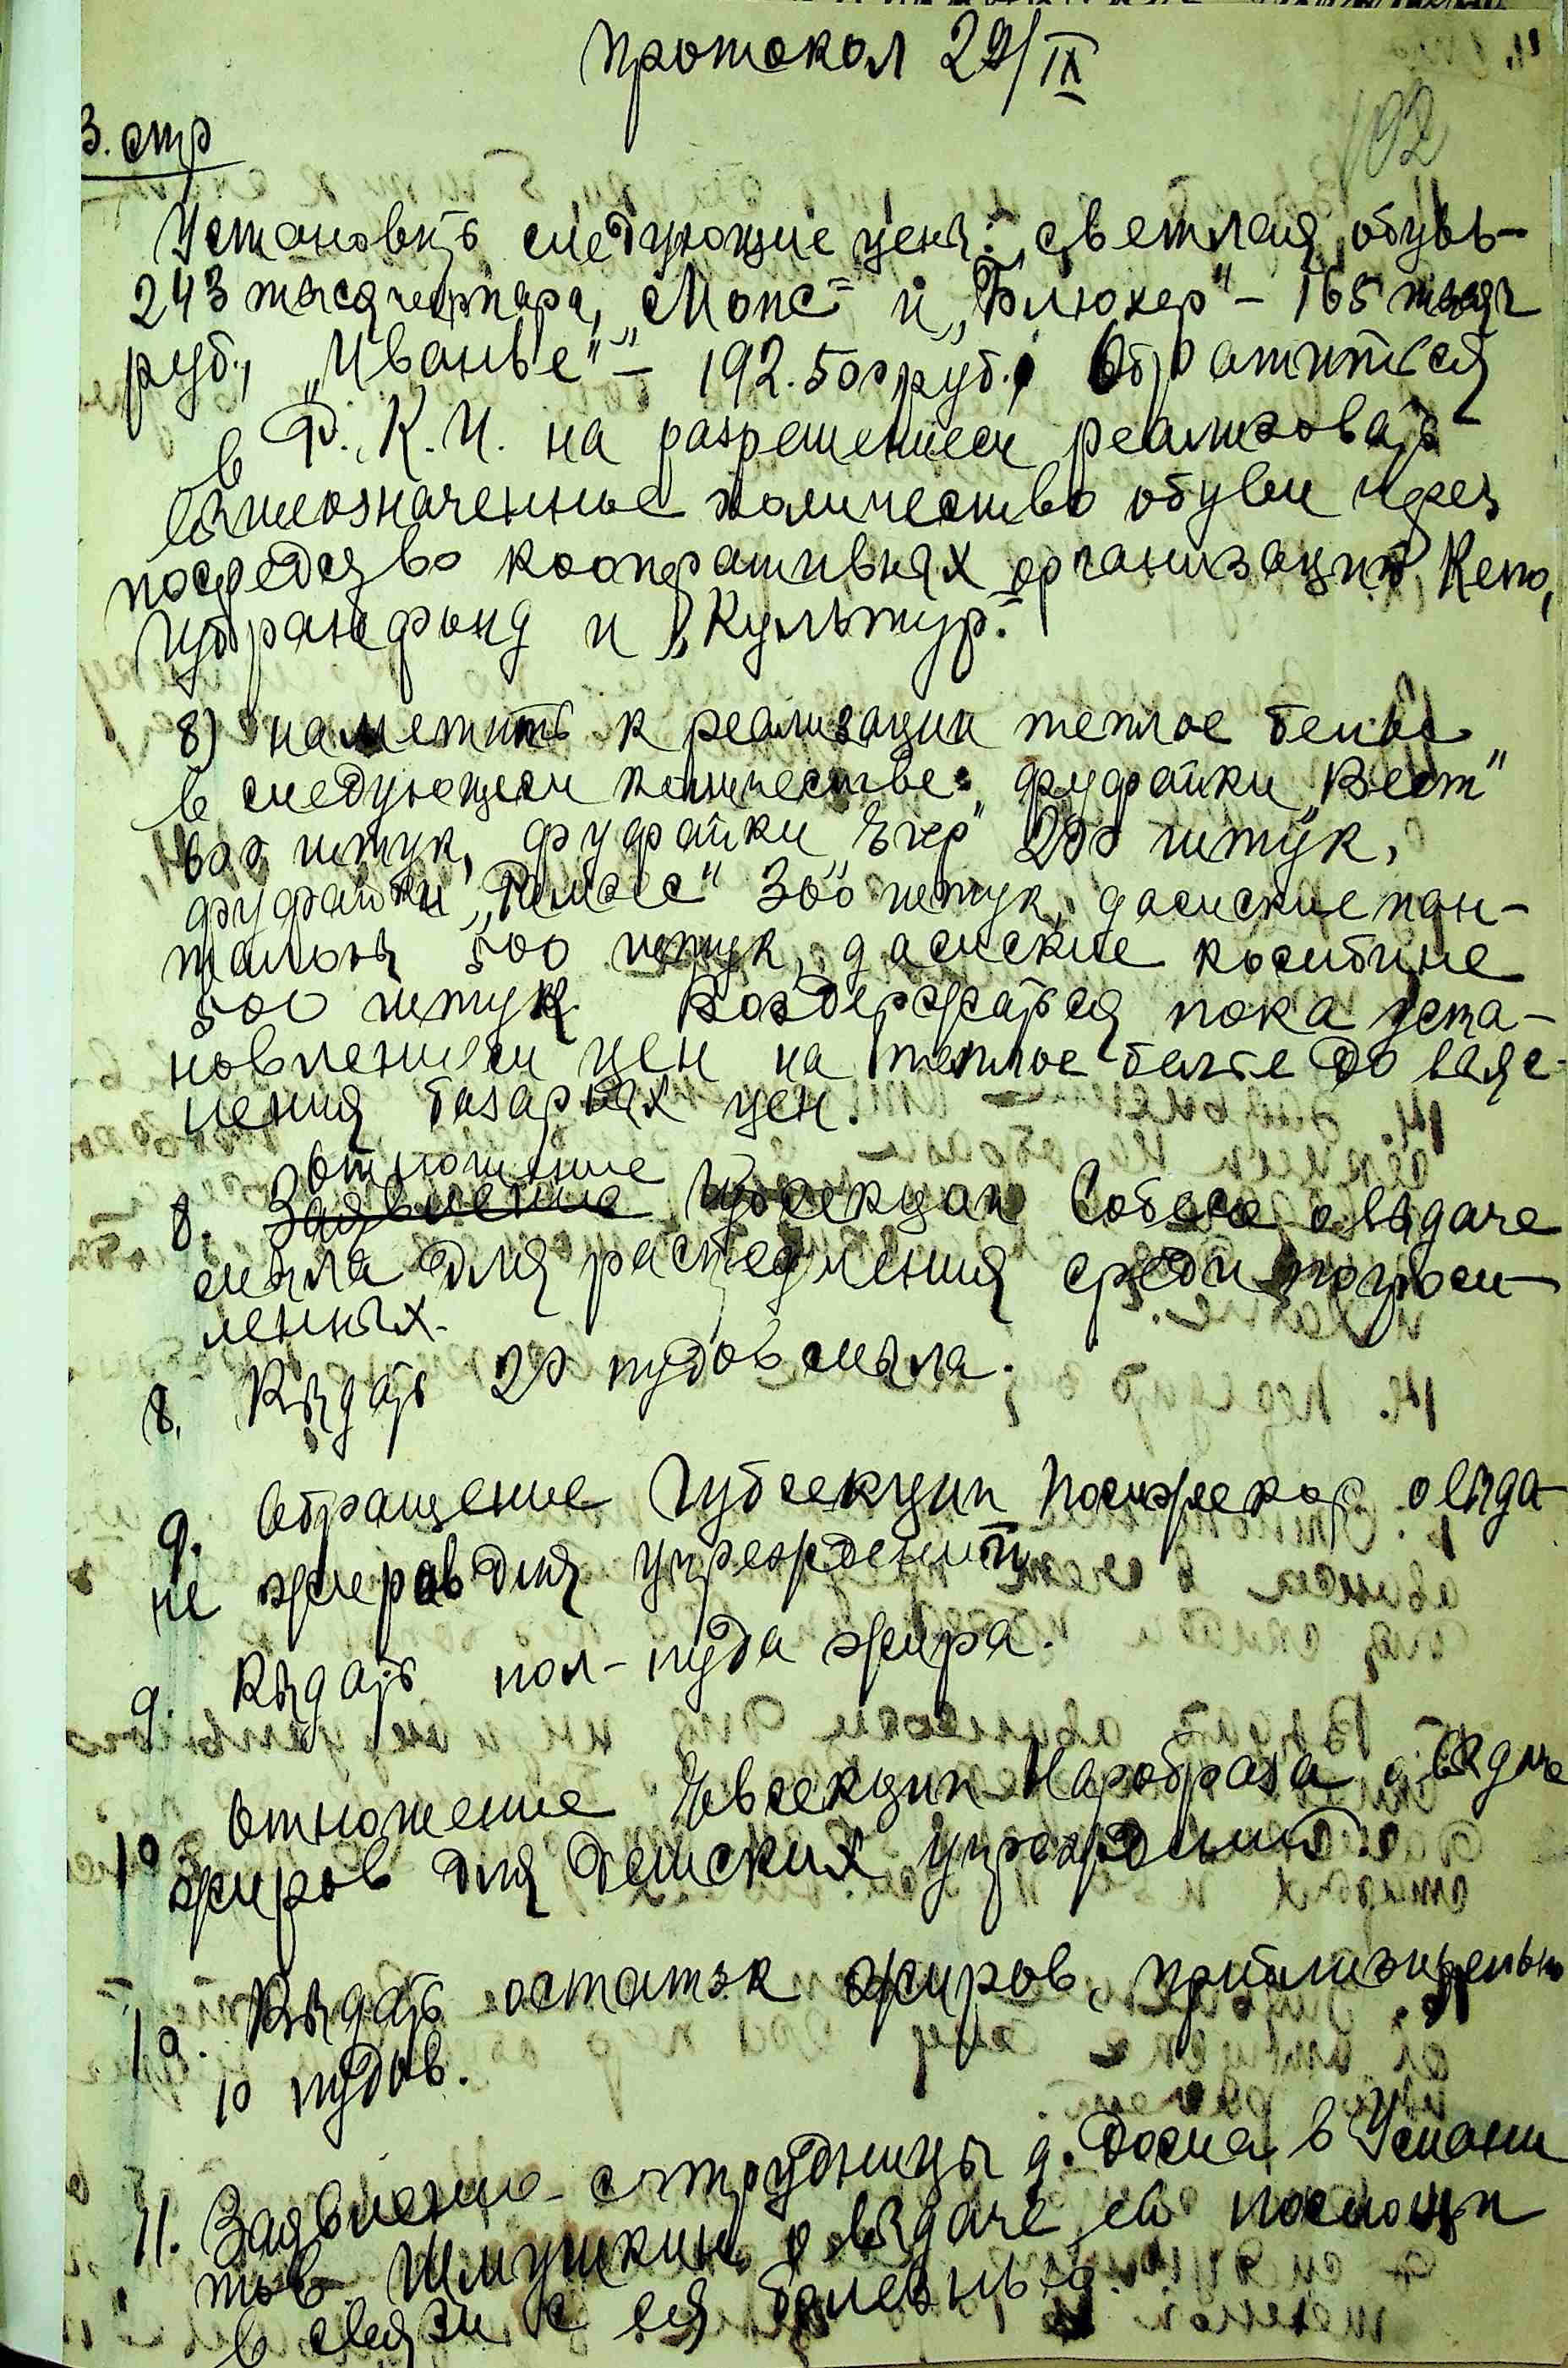 протокол 29/IX
192
3. стр
Установить следующие цены: светлая обувь-
243 тысяч пара, „Мопс" и „Блюхер" - 165 тысяч
руб., „Иванье" - 192.500 руб., Обратиться
в Р.К.И. на разрешением реализовать
вышеозначенное количество обуви через
посредство кооперативных организаций, Кепо,
Губранфонд и „Культур."
8) наметить к реализации теплое белье
в следующем количестве: фуфайки „Вест"
600 штук, фуфайки „Егер" 200 штук,
фуфайки 300 штук, дамские пан-
талоны 500 штук, дамские комбине
500 штук. Воздержаться пока уста-
новлением цен на теплое белье до выяс-
нения базарных цен.
отношение
8. Заявление Губсекции Собеса о выдаче
мыла для распределения среди погром-
ленных.
8. Выдать 20 пудов мыла.
9. Обращение Губсекции Помжекор о выда-
че жиров для учреждений
9. Выдать пол-пуда жира.
10 Отношение Евсекции Наробраза о выдаче
жиров для детских учреждений.
10. Выдать остаток жиров, приблизительно
10 пудов.
11. Заявление сотрудницы д. дома в Умани
тов. Шмушкин о выдаче ей помощи
в связи с ея болезнью.